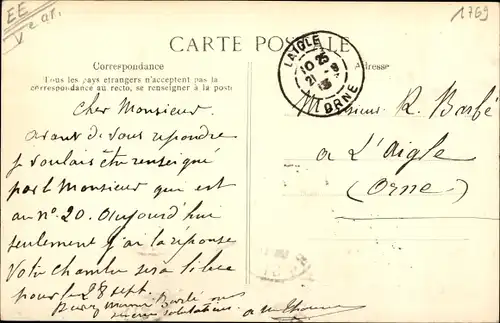 EE
V 2 ar.
1769
CARTE POSTALE
Correspondance
Adresse
Tous les pays etrangers n'acceptent pas la
correspondance au recto, se renseigner à la poste
LAIGLE
10 25
21 -9
13
ORNE
Cher Monsieur.
avant de vous repondre
je voulais être renseigné
par le Monsieur qui est
au n° 20. Aujourd'hui
seulement j'ai la réponse
Votre chambre sera libre
pour le 28 sept.
Monsieur R. Barbé
a L'Aigle
(Orne)